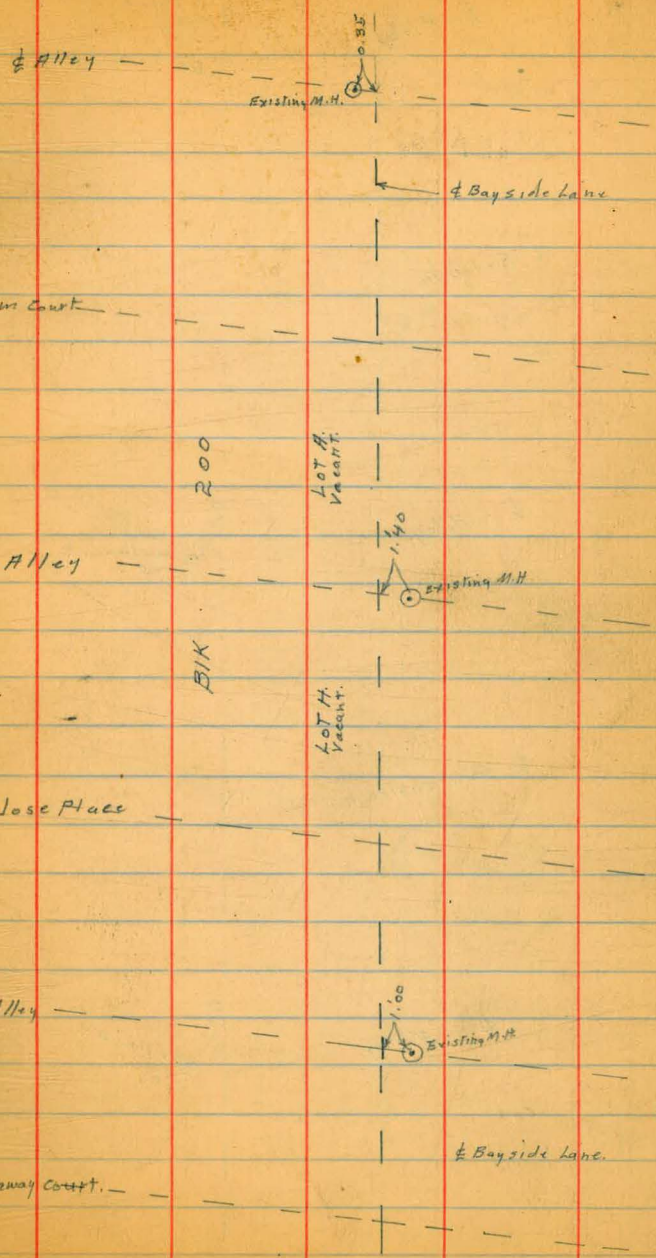 0.35
℄ Alley
Existing M.H.
℄ Bayside Lane
Court
200
LOT A.
Vacant.
1.40
Alley
Existing M.H
BlK
LOT H.
Vacant.
Jose Place
1.00
Alley
Existing M.H
℄ Bayside Lane.
away court.